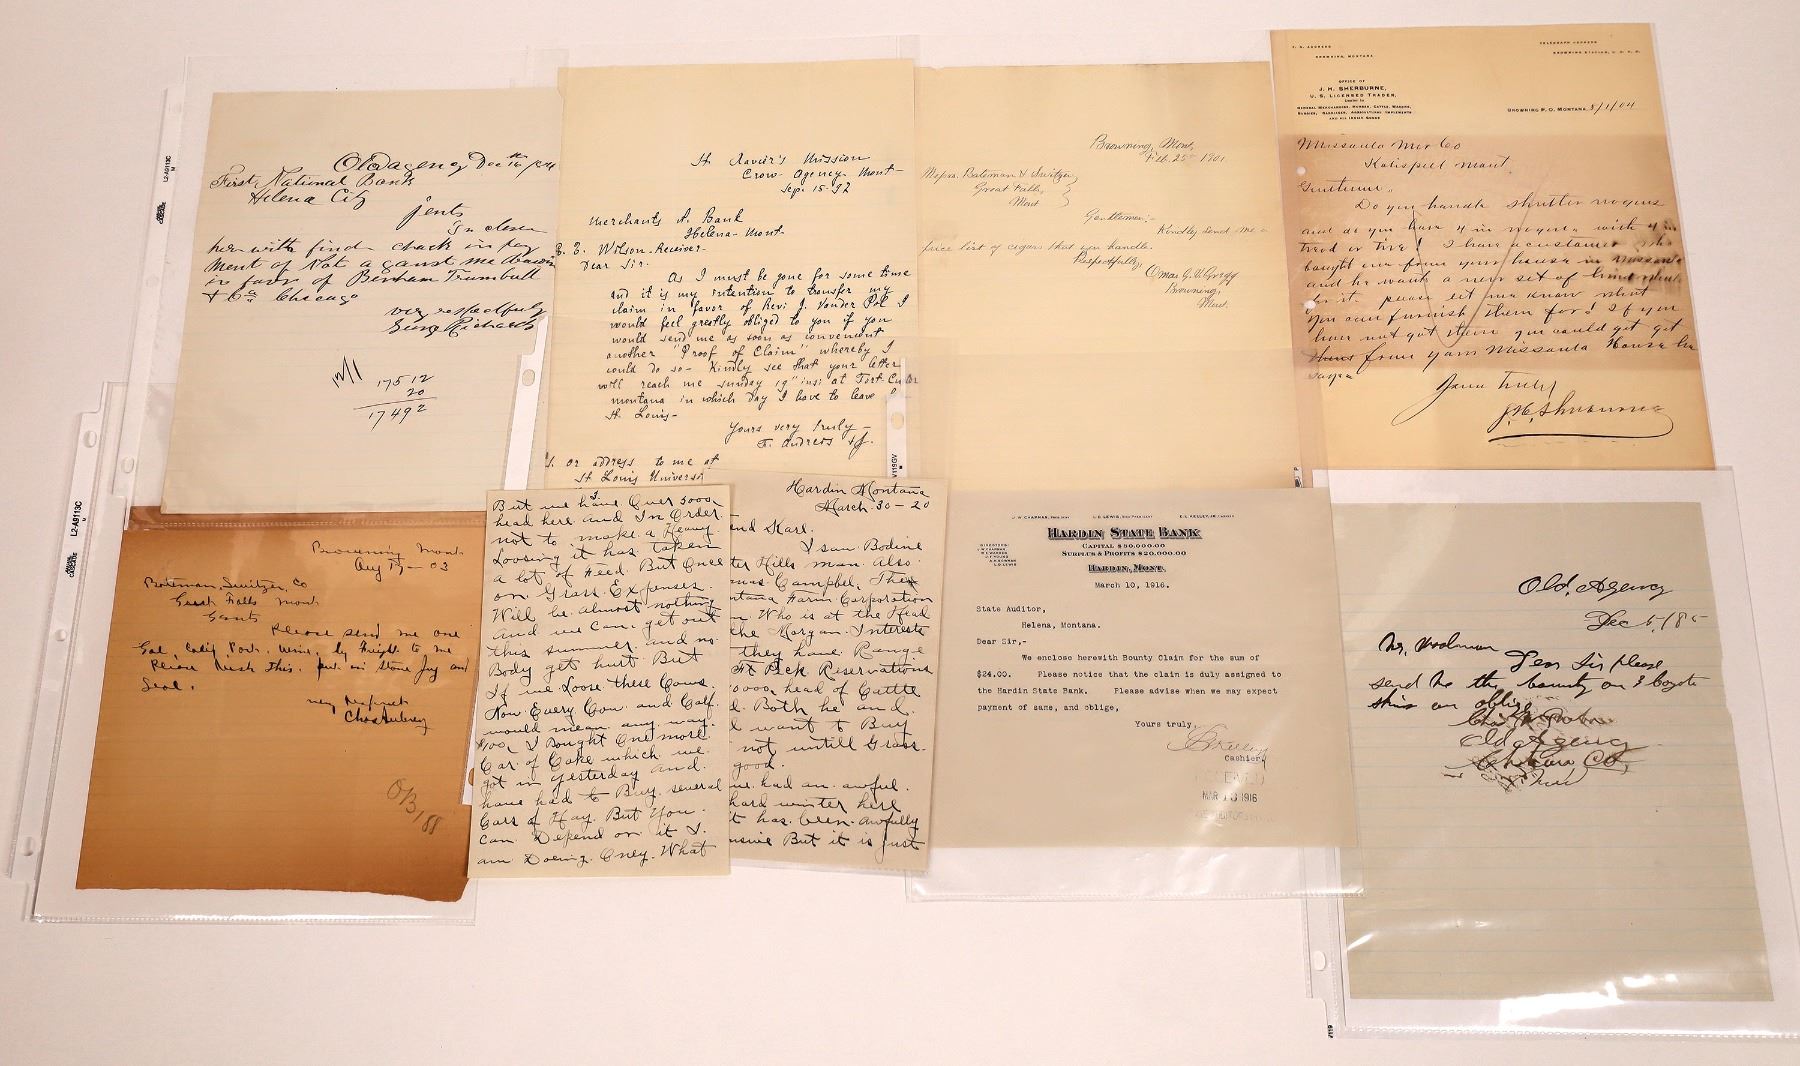 Old agency Dec 16th
First National Bank
Helena City
jents
In closen
here with find check in pay
ment of Not a gainst me drawn
in favor of Benham Trumbull
& Co. Chicago
very respectfully
Geo Richards
17512
20
17492
St Xavier's Mission
Crow Agency Mont-
Sep. 15-92
Merchants N. Bank
Helena- Mont-
E. E. Wilson- Receiver-
Dear Sir-
As I must be gone for some time
and it is my intention to transfer my
claim in favor of Rev. J. Vander Pol I
would feel greatly obliged to you if you
would send me as soon as convenient
another "Proof of Claim" whereby I
could do so- Kindly see that your letter
will reach me sunday 19" inst at Fort Custer
montana in which day I have to leave
St Louis-
Yours very truly-
T. Andreis SJ.
or address to me at
St Louis
Browning, Mont,
Feb. 25th 1901
Messrs. Bateman & Switzer,
Great Falls,
Mont
Gentlemen:-
Kindly send me a
price list of cigars that you handle.
Respectfully,
Omar G. V. Gregg
Browning,
Mont.
P. O. ADDRESS
BROWNING, MONTANA
TELEGRAPH ADDRESS
BROWNING STATION,
OFFICE OF
J. H. SHERBURNE,
U. S. LICENSED TRADER,
Dealer in
GENERAL MERCHANDISE, LUMBER, CATTLE, WAGONS,
BUGGIES, CARRIAGES, AGRICULTURAL IMPLEMENTS
AND ALL INDIAN GOODS
BROWNING P. O. MONTANA, 8/1/04
Missoula Mer Co
Kalispell Mont.
Gentlemen.
Do you handle Shutler wagons
and do you have 4 in wagon with 4 in
tread or tire? I have a customer who
bought one from your house in Missoula
and he wants a new set of hind wheels
for it. please let me know what
you can furnish them for? If you
have not got them you could get
them from your Missoula House he
says
Yours truly
J. H. Sherburne
Browning Mont
Aug 17-03
Bateman, Switzer, Co
Great Falls Mont.
Gents
Please send me one
Gal, Calif Port. Wine, by Freight to me
Please Rush this. put in Stone Jug and
Seal.
very Respect
Chas Aubrey
OB/88
3.
But we have Over 5000
head here and In Order
not to make a Heavy
Loosing it has taken
a lot of Feed. But Once
on Grass Expenses
Will be almost nothing
and we can get out
this summer and no
Body get hurt But
If we Loose these Cows
Now Every Cow and Calf
would mean any way
I Bought One more
Car of Cake which we
got in yesterday and
have had to Buy several
Cars of Hay. But You
can Depend on it I
am Doeing Oney What
Hardin Montana
March 30-20
end Karl.
I saw Bodine
ter Hills man also
mas Campbell, The
ntana Farm Corporation
n Who is at the Head
the Morgan Interests
they have Range
Reservations
0000 head of Cattle
d. Both he and
I want to Buy
not untill Grass
good.
we had an awful
hard winter here
it has been awfully
nsive But it is just
J. W. CHAPMAN, PRESIDENT
L. D. LEWIS, VICE PRESIDENT
E. L. KELLEY, JR., CASHIER
HARDIN STATE BANK
CAPITAL $50,000.00
SURPLUS & PROFITS $20,000.00
HARDIN, MONT.
DIRECTORS:
March 10, 1916.
State Auditor,
Helena, Montana.
Dear Sir,-
We enclose herewith Bounty Claim for the sum of
$24.00. Please notice that the claim is duly assigned to
the Hardin State Bank. Please advise when we may expect
payment of same, and oblige,
Yours truly,
Cashier
RECEIVED
MAR 13 1916
Old, Agency
Dec 5, 18
Mr, Woodman
Dear Sir please
send me the bounty on 3 Coyote
skins an oblige
Old Agency
Choteau CO,
L2-A9113C
L2-A9113C